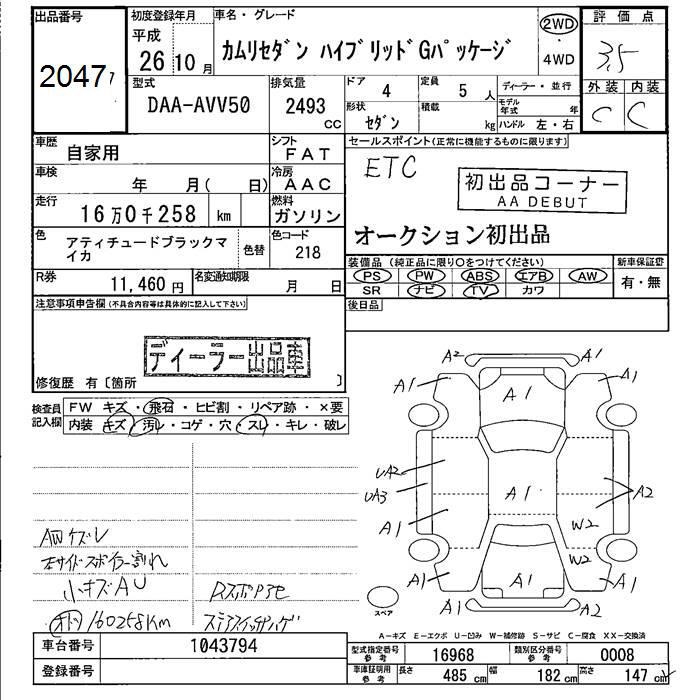 出品番号
20477
初度登録年月
平成
26 10 月
車名・グレード
カムリセダン ハイブリッドGパッケージ
2WD
・
4WD
評価点
3.5
外装 内装
C C
型式
DAA-AVV50
排気量
2493
CC
ドア
4
定員
5 人
形状
セダン
積載
kg
ディーラー・並行
モデル年式 年
ハンドル 左・右
車歴
自家用
シフト
FAT
車検
年 月( 日)
冷房
AAC
走行
16万0千258 km
燃料
ガソリン
色
アティチュードブラックマイカ
色替
色コード
218
R券
11,460 円
名変通知期限
月 日
セールスポイント(正常に機能するものに限ります)
ETC
初出品コーナー
AA DEBUT
オークション初出品
装備品(純正品に限り〇をつけてください)
PS PW ABS エアB AW
SR ナビ TV カワ
新車保証書
有・無
後日品
注意事項申告欄(不具合内容等は具体的に記入して下さい)
ディーラー出品車
修復歴 有〔箇所 〕
検査員
記入欄
FW キズ・飛石・ヒビ割・リペア跡・×要
内装 キズ・汚レ・コゲ・穴・スレ・キレ・破レ
AWケズレ
左サイドスポイラー割れ
小キズAU
メーター 160258Km
A2 A1
A1 A1 A1
UA2
UA3
A1 A2
A1 W2
W2
A1 A1 A1
A1 A2
スペア
A-キズ E-エクボ U-凹み W-補修跡 S-サビ C-腐食 XX-交換済
車台番号
1043794
登録番号
型式指定番号
参考
16968
類別区分番号
参考
0008
車庫証明用
参考
長さ
485 cm
幅
182 cm
高さ
147 cm